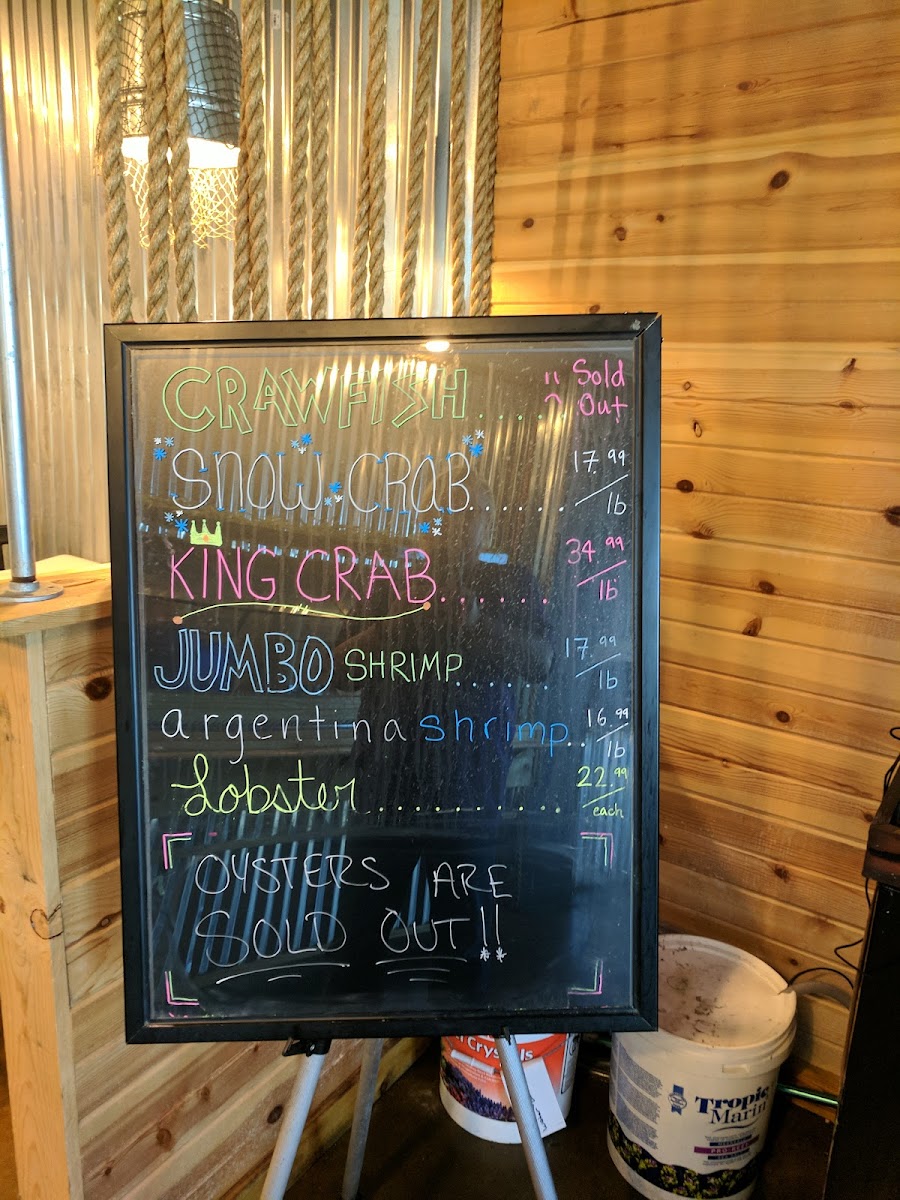 CRAWFISH..... Sold Out
SNOW CRAB...... 17.99/lb
KING CRAB...... 34.99/lb
JUMBO SHRIMP...... 17.99/lb
argentina shrimp.. 16.99/lb
Lobster........... 22.99/each
OYSTERS ARE
SOLD OUT!!
Crystals
Tropic
Marin
PRO-REEF